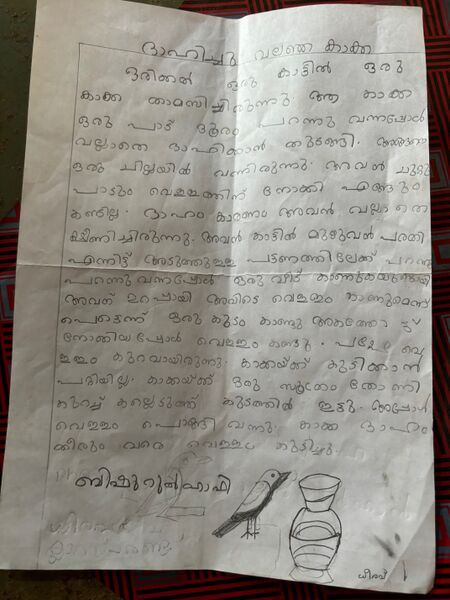 ദാഹിച്ചു വലഞ്ഞ കാക്ക
ഒരിക്കൽ ഒരു കാട്ടിൽ ഒരു
കാക്ക താമസിച്ചിരുന്നു ആ കാക്ക
ഒരു പാട് ദൂരം പറന്നു വന്നപ്പോൾ
വല്ലാതെ ദാഹിക്കാൻ തുടങ്ങി.
ഒരു ചില്ലയിൽ വന്നിരുന്നു. അവൻ ചുറ്റു
പാടും വെള്ളത്തിന് നോക്കി എങ്ങും
കണ്ടില്ല. ദാഹം കാരണം അവൻ വല്ലാതെ
ക്ഷീണിച്ചിരുന്നു. അവൻ കാട്ടിൽ മുഴുവൻ പരതി
എന്നിട്ട് അടുത്തുള്ള പട്ടണത്തിലേക്ക് പറന്നു
പറന്നു വന്നപ്പോൾ ഒരു വീട് കാണുകയുണ്ടായി
അവന് ഉറപ്പായി അവിടെ വെള്ളം കാണുമെന്ന്
പെട്ടെന്ന് ഒരു കുടം കണ്ടു അകത്തോട്ട്
നോക്കിയപ്പോൾ വെള്ളം കണ്ടു. പക്ഷേ വെ
ള്ളം കുറവായിരുന്നു. കാക്കയ്ക്ക് കുടിക്കാൻ
പറ്റിയില്ല. കാക്കയ്ക്ക് ഒരു സൂത്രം തോന്നി
കുറച്ച് കല്ലെടുത്ത് കുടത്തിൽ ഇട്ടു. അപ്പോൾ
വെള്ളം പൊങ്ങി വന്നു. കാക്ക ദാഹം
തീരും വരെ വെള്ളം കുടിച്ചു.
ബിഷുറുൽഹാഫി
ധീരവ്